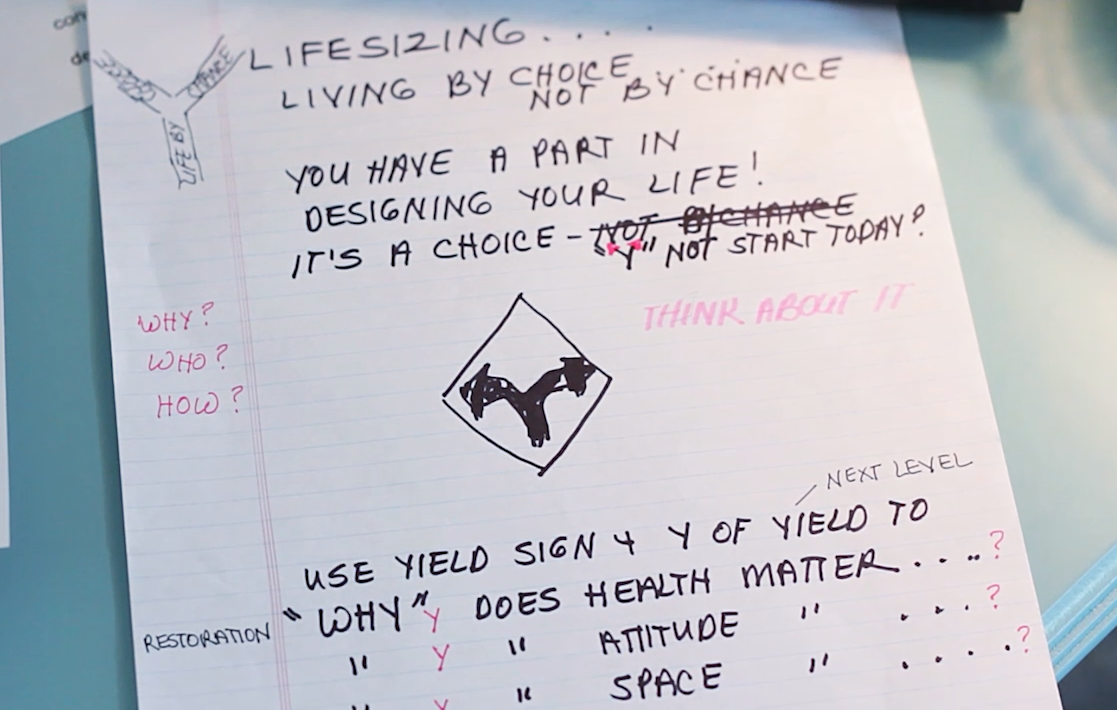 con
de
CHANCE
LIFE BY
LIFESIZING.....
LIVING BY CHOICE
NOT BY CHANCE
YOU HAVE A PART IN
DESIGNING YOUR LIFE!
IT'S A CHOICE - NOT BY CHANCE
"Y" NOT START TODAY?
THINK ABOUT IT
WHY?
WHO?
HOW?
NEXT LEVEL
USE YIELD SIGN Y Y OF YIELD TO
"WHY" Y DOES HEALTH MATTER.....?
RESTORATION
" Y " ATTITUDE " ....?
" Y " SPACE " .....?